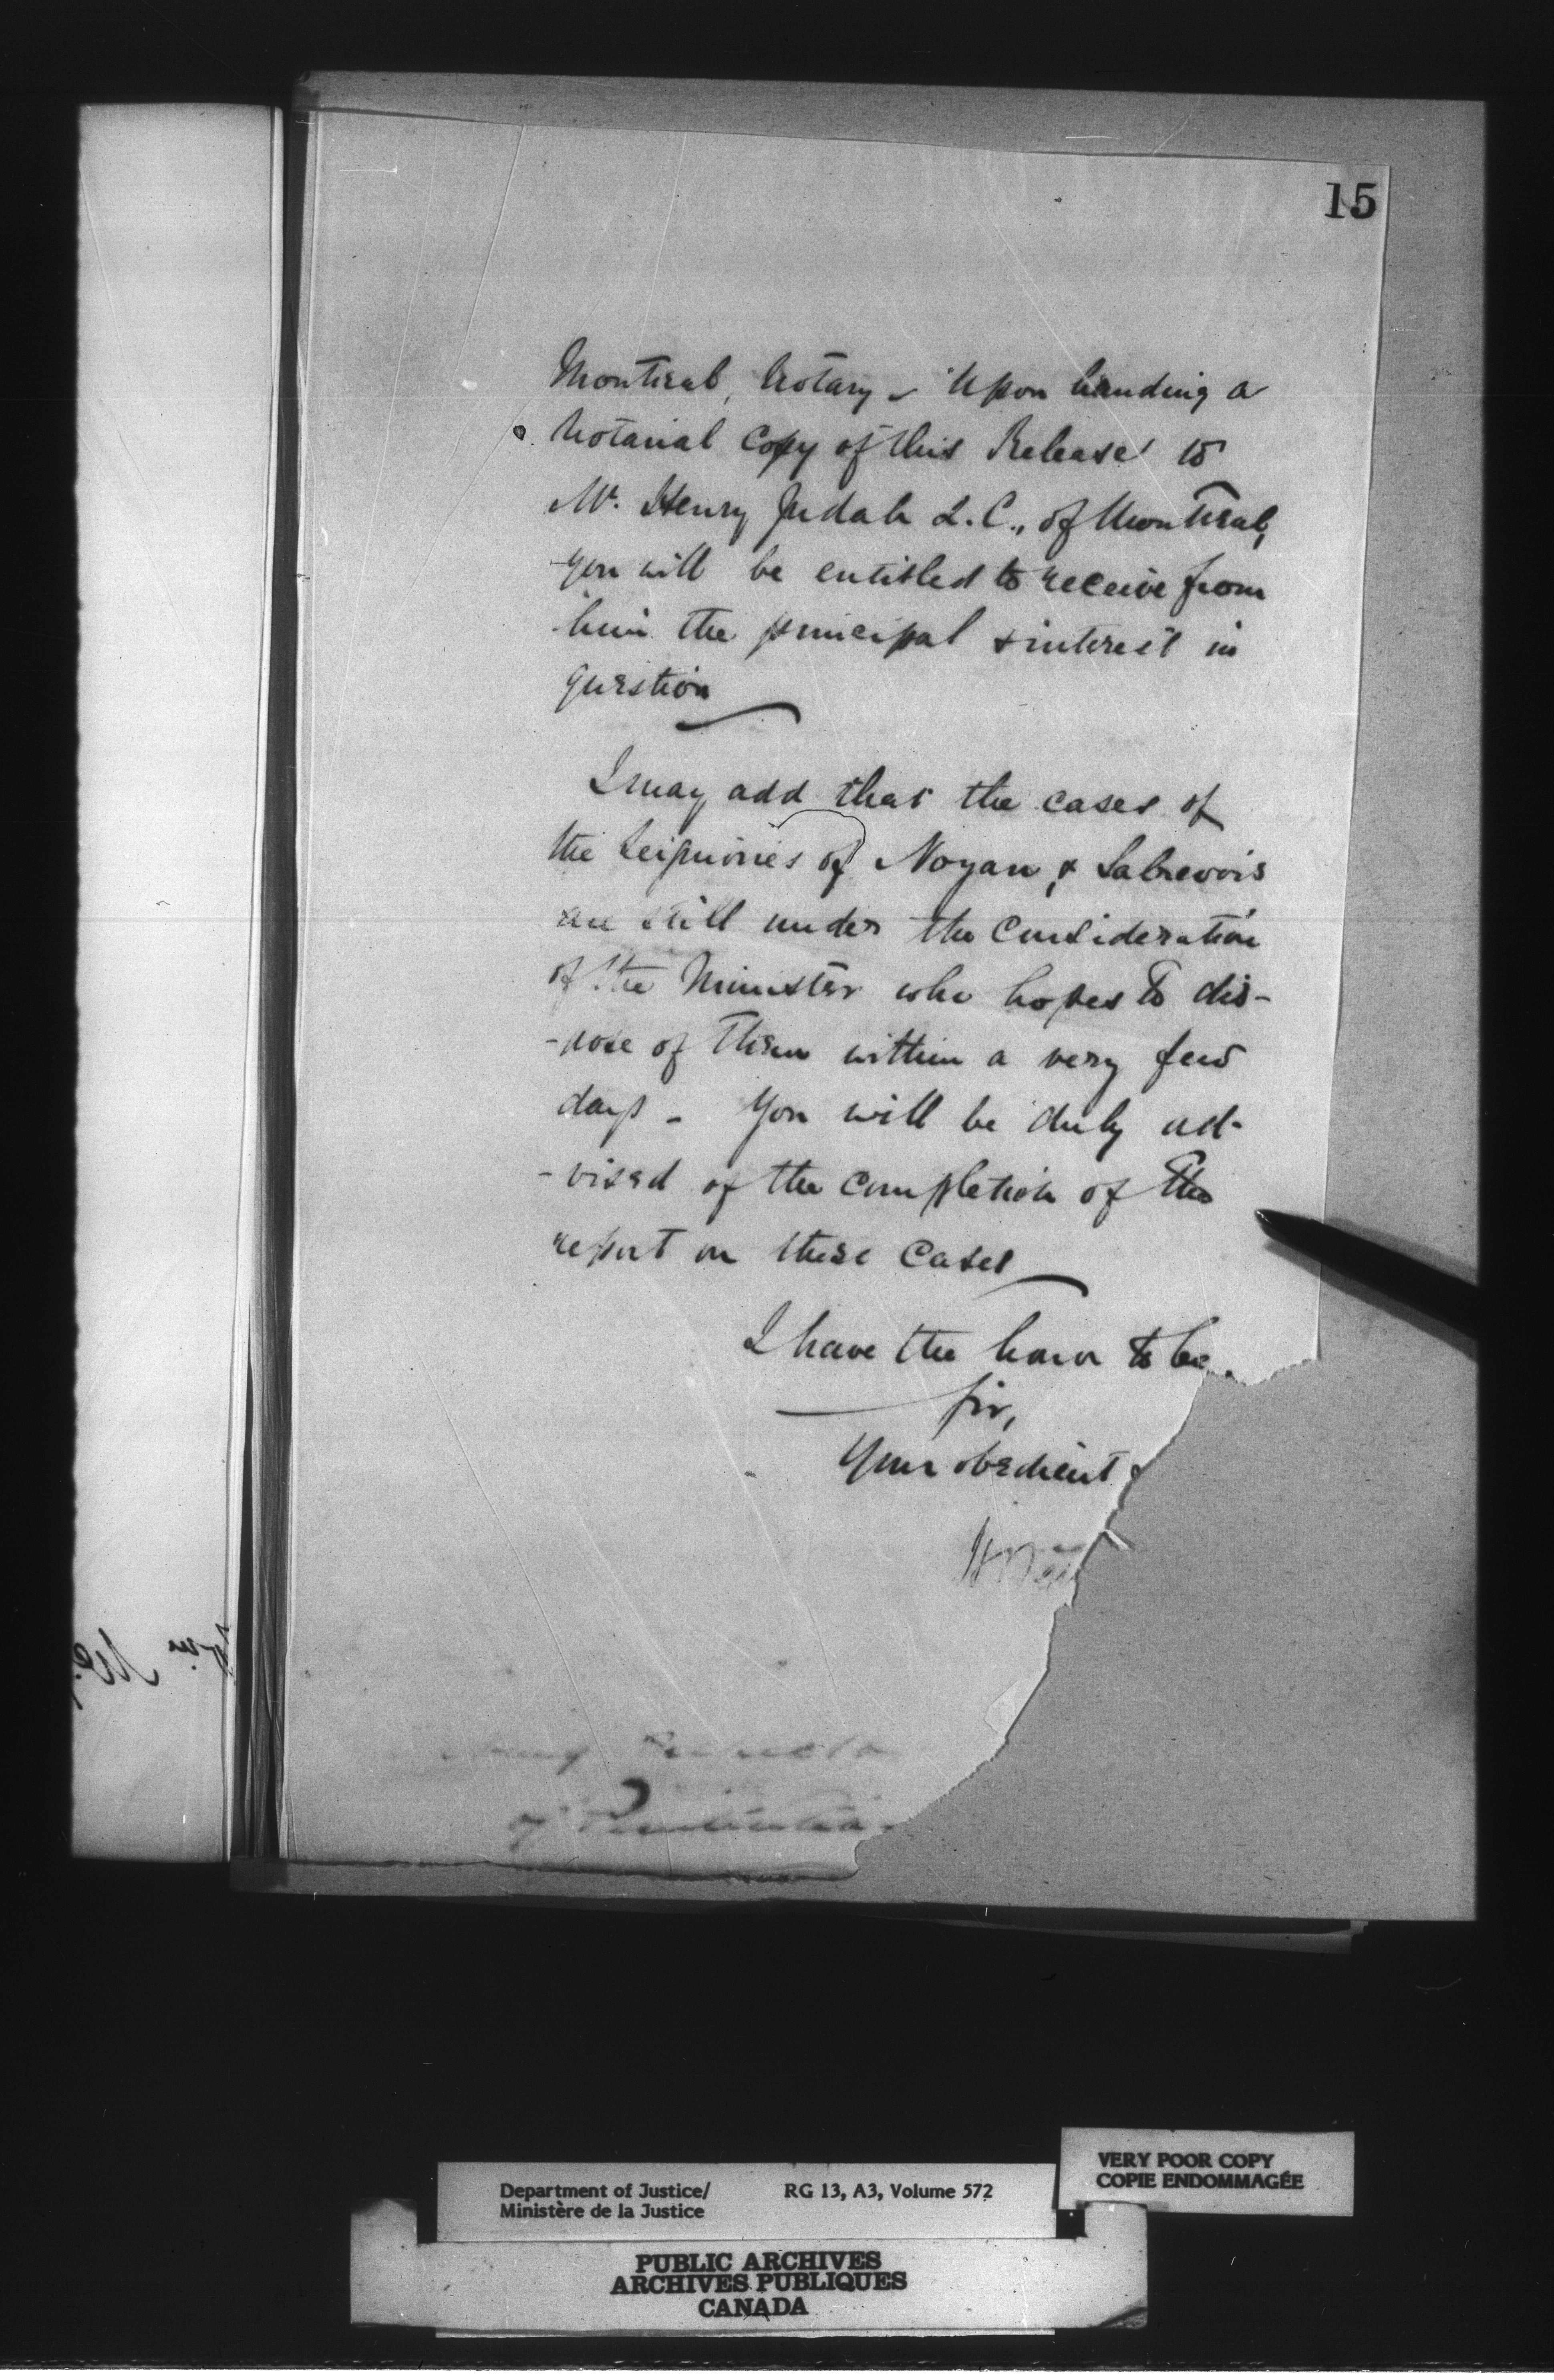 15
Montreal, Notary – Upon handing a
Notarial Copy of this Release to
Mr. Henry Judah Q.C., of Montreal,
you will be entitled to receive from
him the principal & interest in
question
I may add that the cases of
the Seigniories of Noyan, & Sabrevois
are still under the consideration
of the Minister who hopes to dis-
-pose of them within a very few
days – You will be duly ad-
-vised of the completion of the
report on these cases
I have the honor to be
Sir,
Your obedient
of
Department of Justice/
Ministère de la Justice
RG 13, A3, Volume 572
VERY POOR COPY
COPIE ENDOMMAGÉE
PUBLIC ARCHIVES
ARCHIVES PUBLIQUES
CANADA